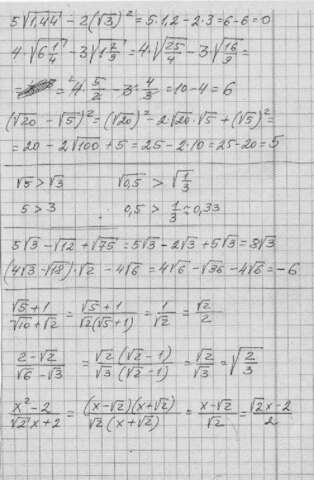 5√1,44 − 2(√3)² = 5·1,2 − 2·3 = 6−6 = 0
4·√6 1/4 − 3√1 7/9 = 4·√25/4 − 3·√16/9 =
= ²4·5/2 − 3·4/3 = 10−4 = 6
(√20 − √5)² = (√20)² − 2√20·√5 + (√5)² =
= 20 − 2√100 + 5 = 25 − 2·10 = 25−20 = 5
√5 > √3    √0,5 > √1/3
5 > 3    0,5 > 1/3 ≈ 0,33
5√3 − √12 + √75 = 5√3 − 2√3 + 5√3 = 8√3
(4√3 − √18)·√2 − 4√6 = 4√6 − √36 − 4√6 = −6
(√5+1)/(√10+√2) = (√5+1)/(√2(√5+1)) = 1/√2 = √2/2
(2−√2)/(√6−√3) = (√2(√2−1))/(√3(√2−1)) = √2/√3 = √2/3
(x²−2)/(√2x+2) = ((x−√2)(x+√2))/(√2(x+√2)) = (x−√2)/√2 = (√2x−2)/2